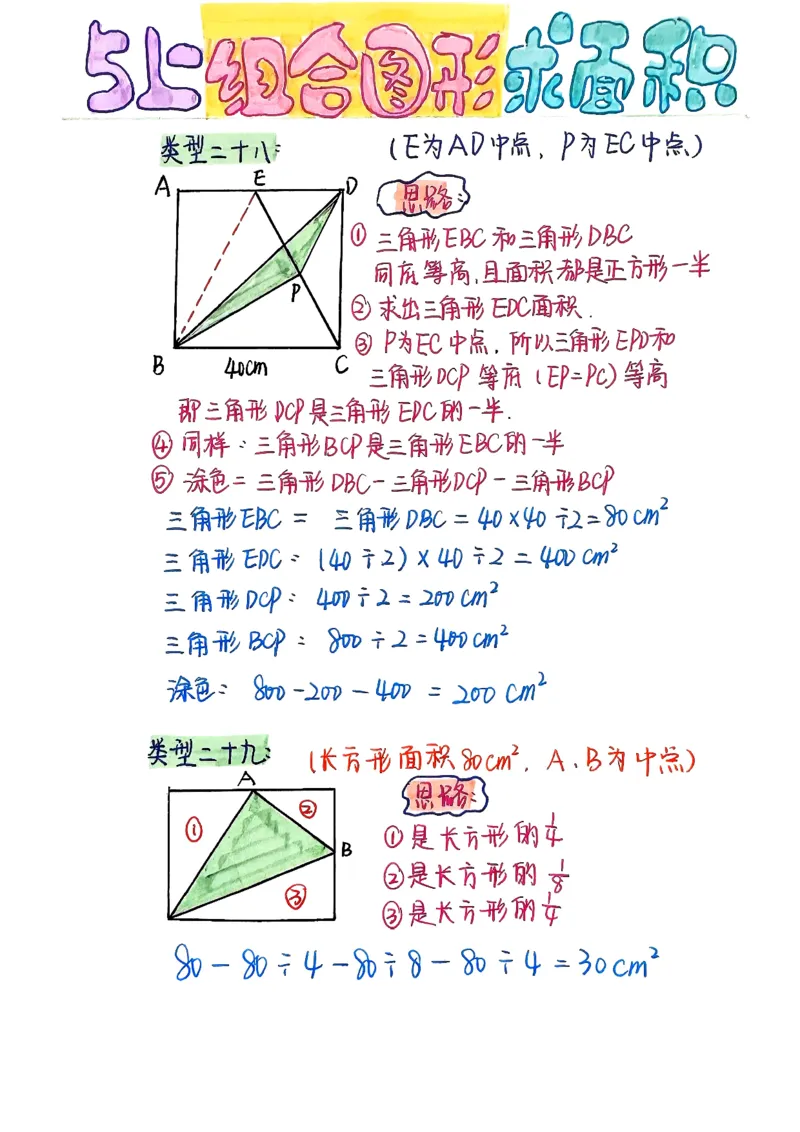 5上组合图形求面积
类型二十八:
(E为AD中点,P为EC中点)
A
E
D
P
B
40cm
C
思路:
① 三角形EBC和三角形DBC
同底等高,且面积都是正方形一半
② 求出三角形EDC面积.
③ P为EC中点,所以三角形EPD和
三角形DCP等底(EP=PC)等高
即三角形DCP是三角形EDC的一半.
④ 同样:三角形BCP是三角形EBC的一半
⑤ 涂色=三角形DBC-三角形DCP-三角形BCP
三角形EBC = 三角形DBC=40×40÷2=80cm²
三角形EDC:(40÷2)×40÷2=400cm²
三角形DCP:400÷2=200cm²
三角形BCP:800÷2=400cm²
涂色:800-200-400=200cm²
类型二十九:
(长方形面积80cm²,A、B为中点)
A
①
②
B
③
思路:
①是长方形的1/4
②是长方形的1/8
③是长方形的1/4
80-80÷4-80÷8-80÷4=30cm²